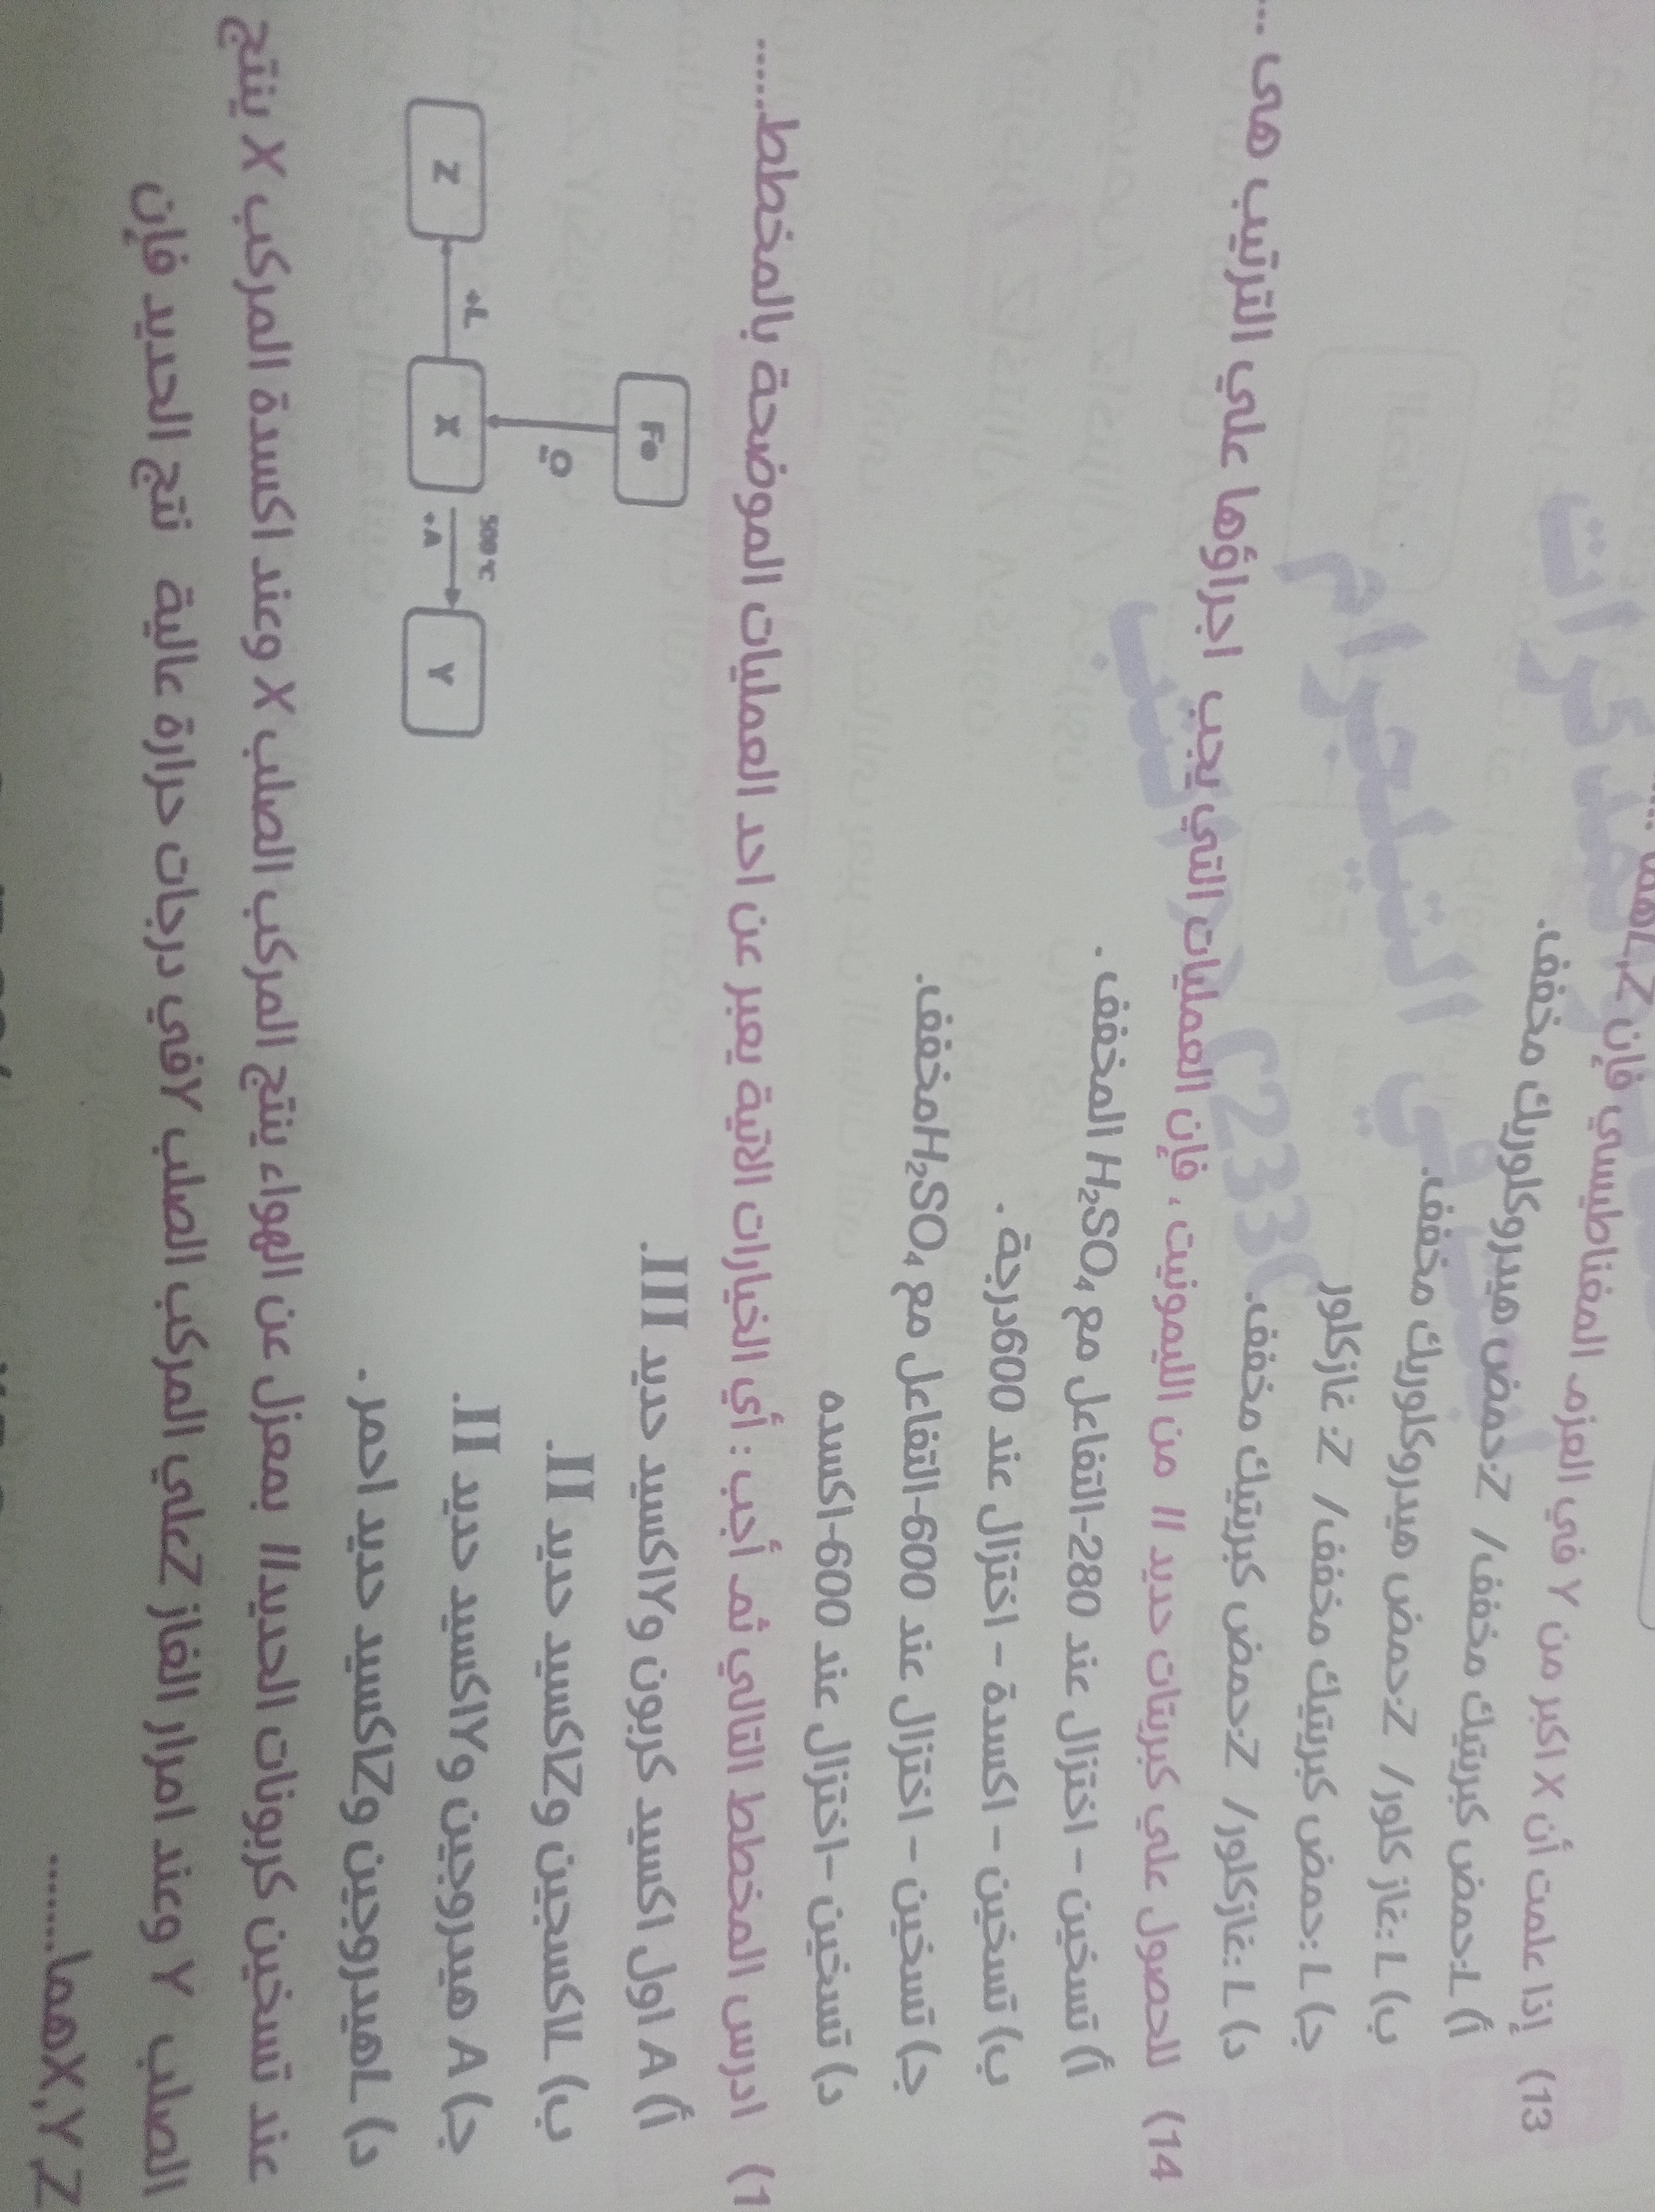 فإن L,Z هما ....
13) إذا علمت أن X اكبر من Y في العزم المغناطيسي
أ) L:حمض كبريتيك مخفف/ Z:حمض هيدروكلوريك مخفف.
ب) L:غاز كلور/ Z:حمض هيدروكلوريك مخفف.
ج) L:حمض كبريتيك مخفف/ Z: غازكلور
د) L:غازكلور/ Z:حمض كبريتيك مخفف.
14) للحصول علي كبريتات حديد II من الليمونيت ، فإن العمليات التي يجب اجراؤها علي الترتيب هى ...
أ) تسخين – اختزال عند 280-التفاعل مع H₂SO₄ المخفف .
ب) تسخين – اكسدة – اختزال عند 600درجة .
ج) تسخين – اختزال عند 600-التفاعل مع H₂SO₄مخفف.
د) تسخين –اختزال عند 600-اكسده
ادرس المخطط التالي ثم أجب : أي الخيارات الاتية يعبر عن احد العمليات الموضحة بالمخطط.....
أ) A اول اكسيد كربون وYاكسيد حديد III.
ب) Lاكسجين وZاكسيد حديد II.
ج) A هيدروجين وYاكسيد حديد II.
د) Lهيدروجين وZاكسيد حديد احمر .
Fe
Z +L X 500 ℃ +A Y
عند تسخين كربونات الحديدII بمعزل عن الهواء ينتج المركب الصلب X وعند اكسدة المركب X ينتج
الصلب Y وعند امرار الغاز Zعلي المركب الصلب Yفي درجات حرارة عالية نتج الحديد فإن
X,Y,Zهما........
مذكرات
التيلجرام
C233C